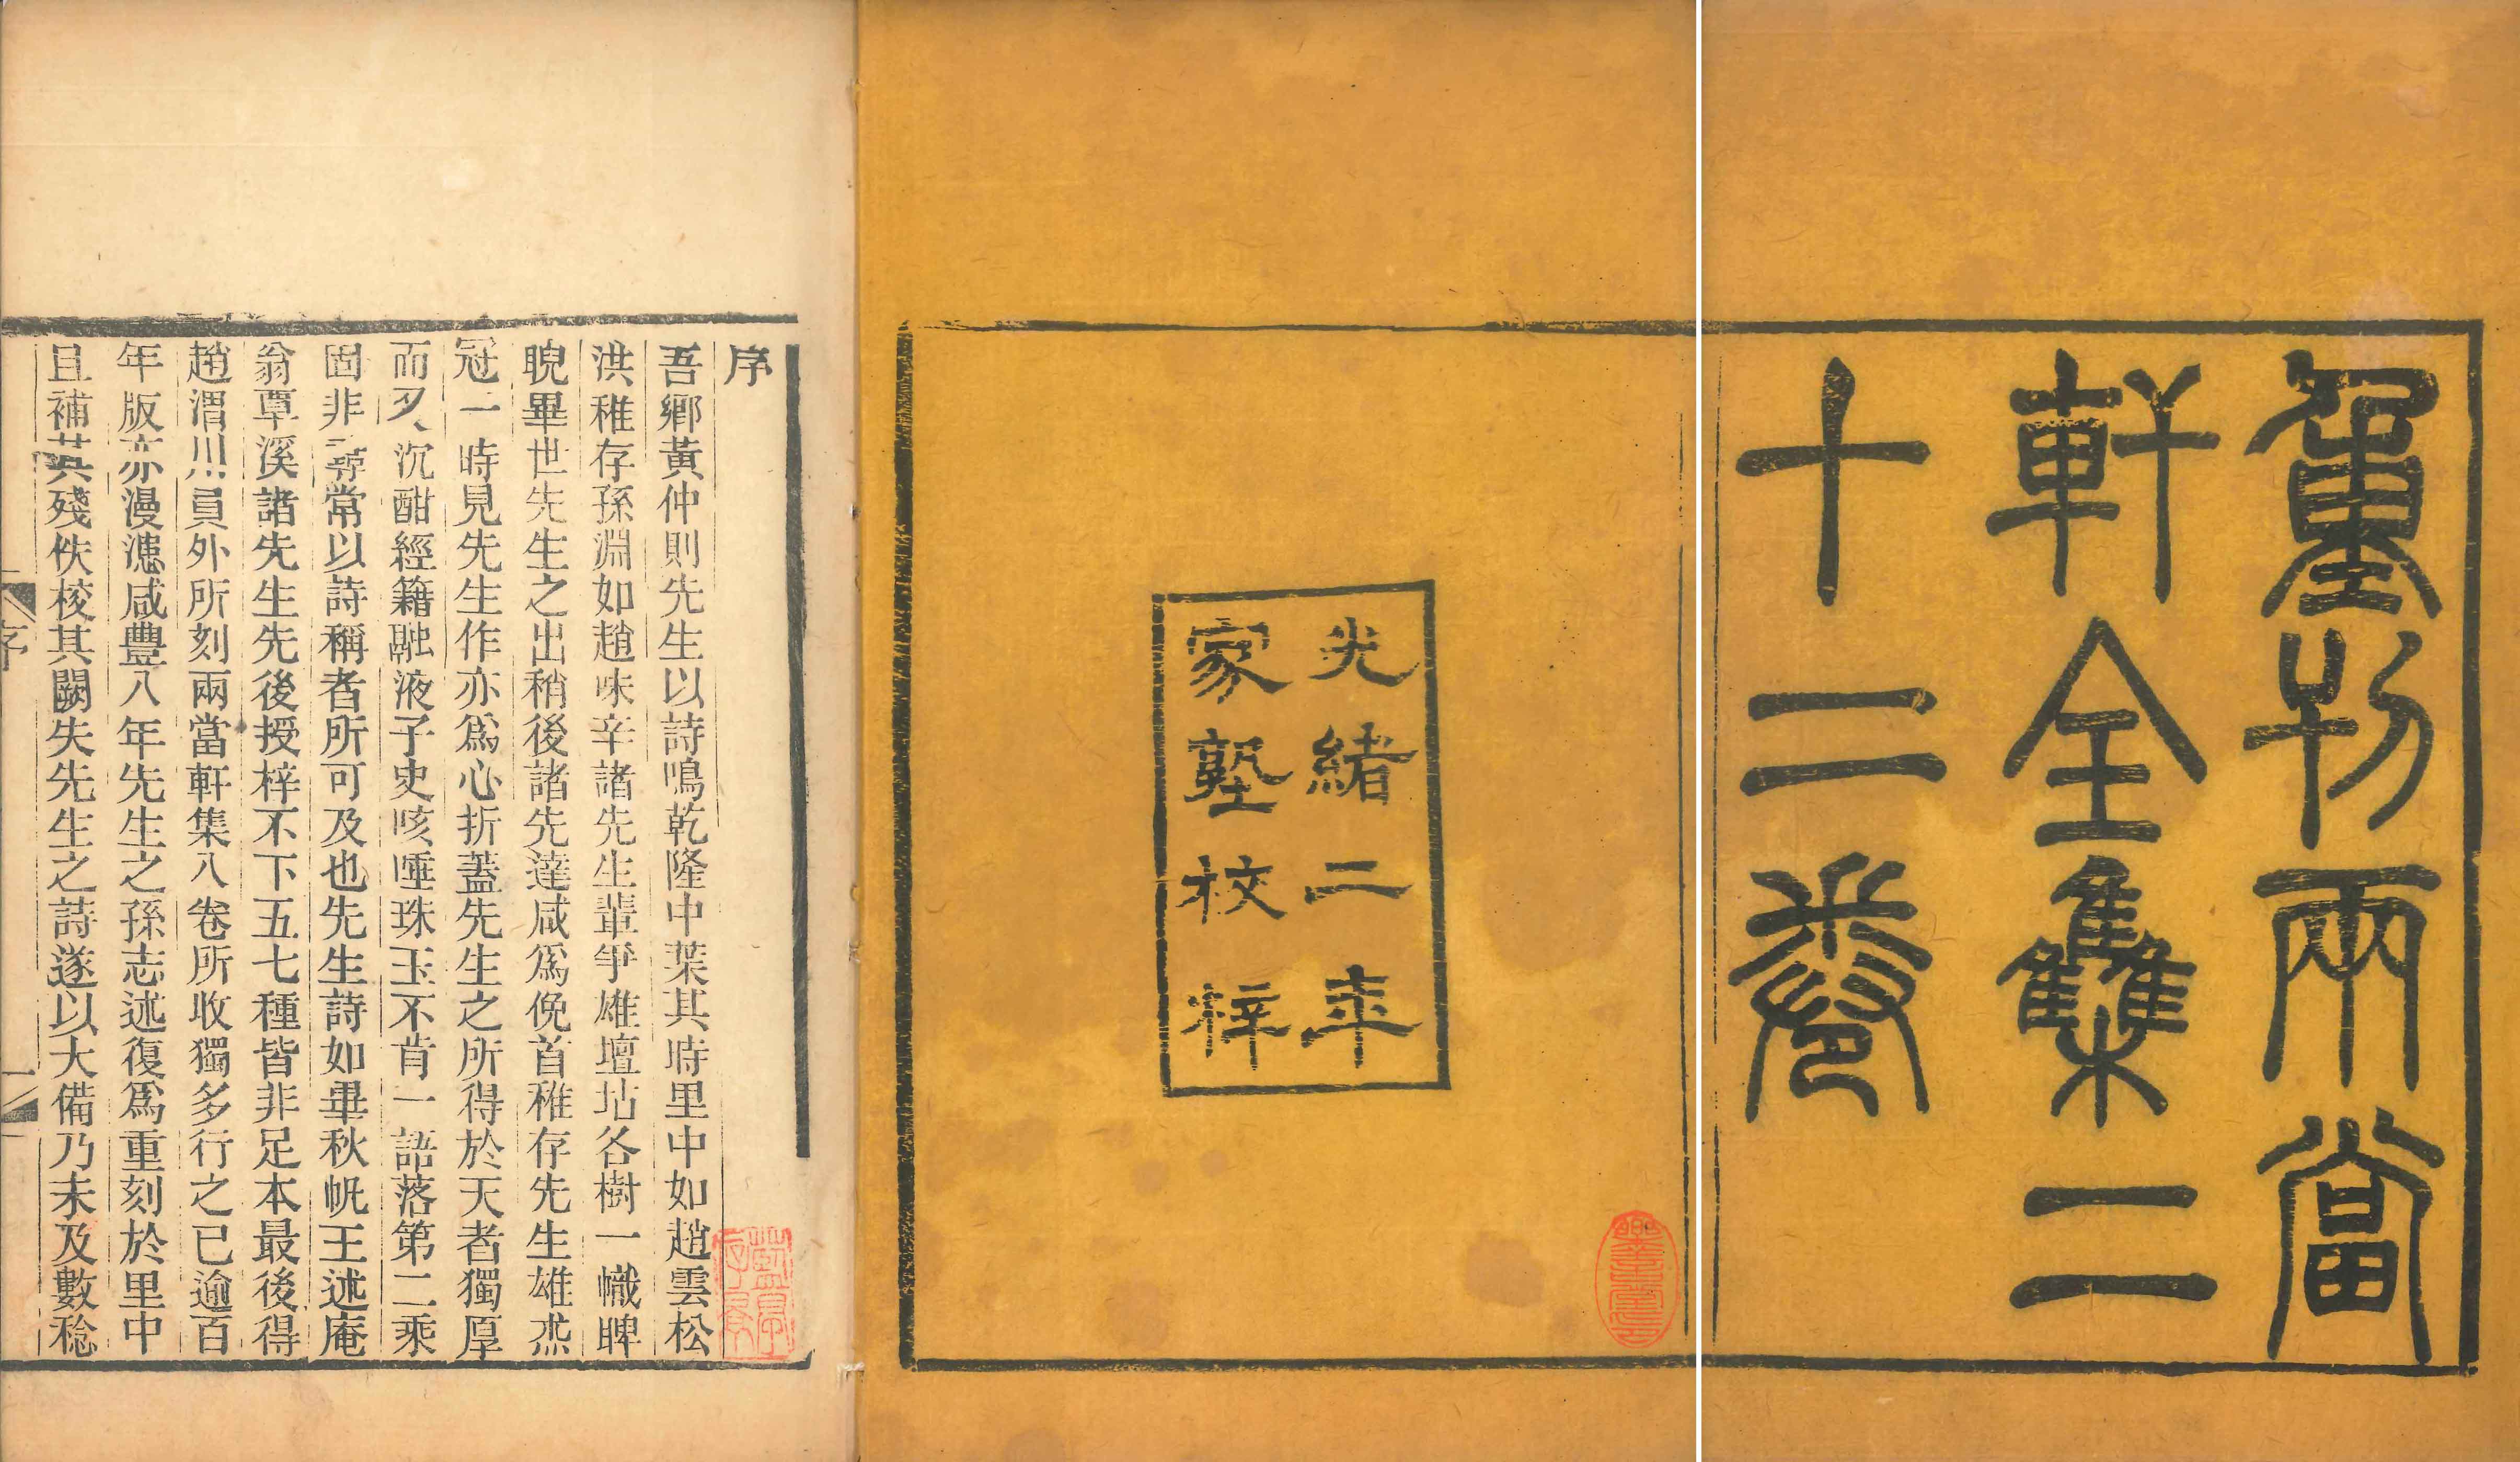 重刊兩當
軒全集二
十二卷
光緒二年
家塾校梓
序
吾鄉黃仲則先生以詩鳴乾隆中葉其時里中如趙雲松
洪稚存孫淵如趙味辛諸先生輩爭雄壇坫各樹一幟睥
睨畢世先生之出稍後諸先達咸爲俛首稚存先生雄杰
冠一時見先生作亦爲心折蓋先生之所得於天者獨厚
而又沉酣經籍融液子史咳唾珠玉不肯一語落第二乘
固非尋常以詩稱者所可及也先生詩如畢秋帆王述庵
翁覃溪諸先生先後授梓不下五七種皆非足本最後得
趙渭川員外所刻兩當軒集八卷所收獨多行之已逾百
年版亦漫漶咸豐八年先生之孫志述復爲重刻於里中
且補其殘佚校其闕失先生之詩遂以大備乃未及數稔
序